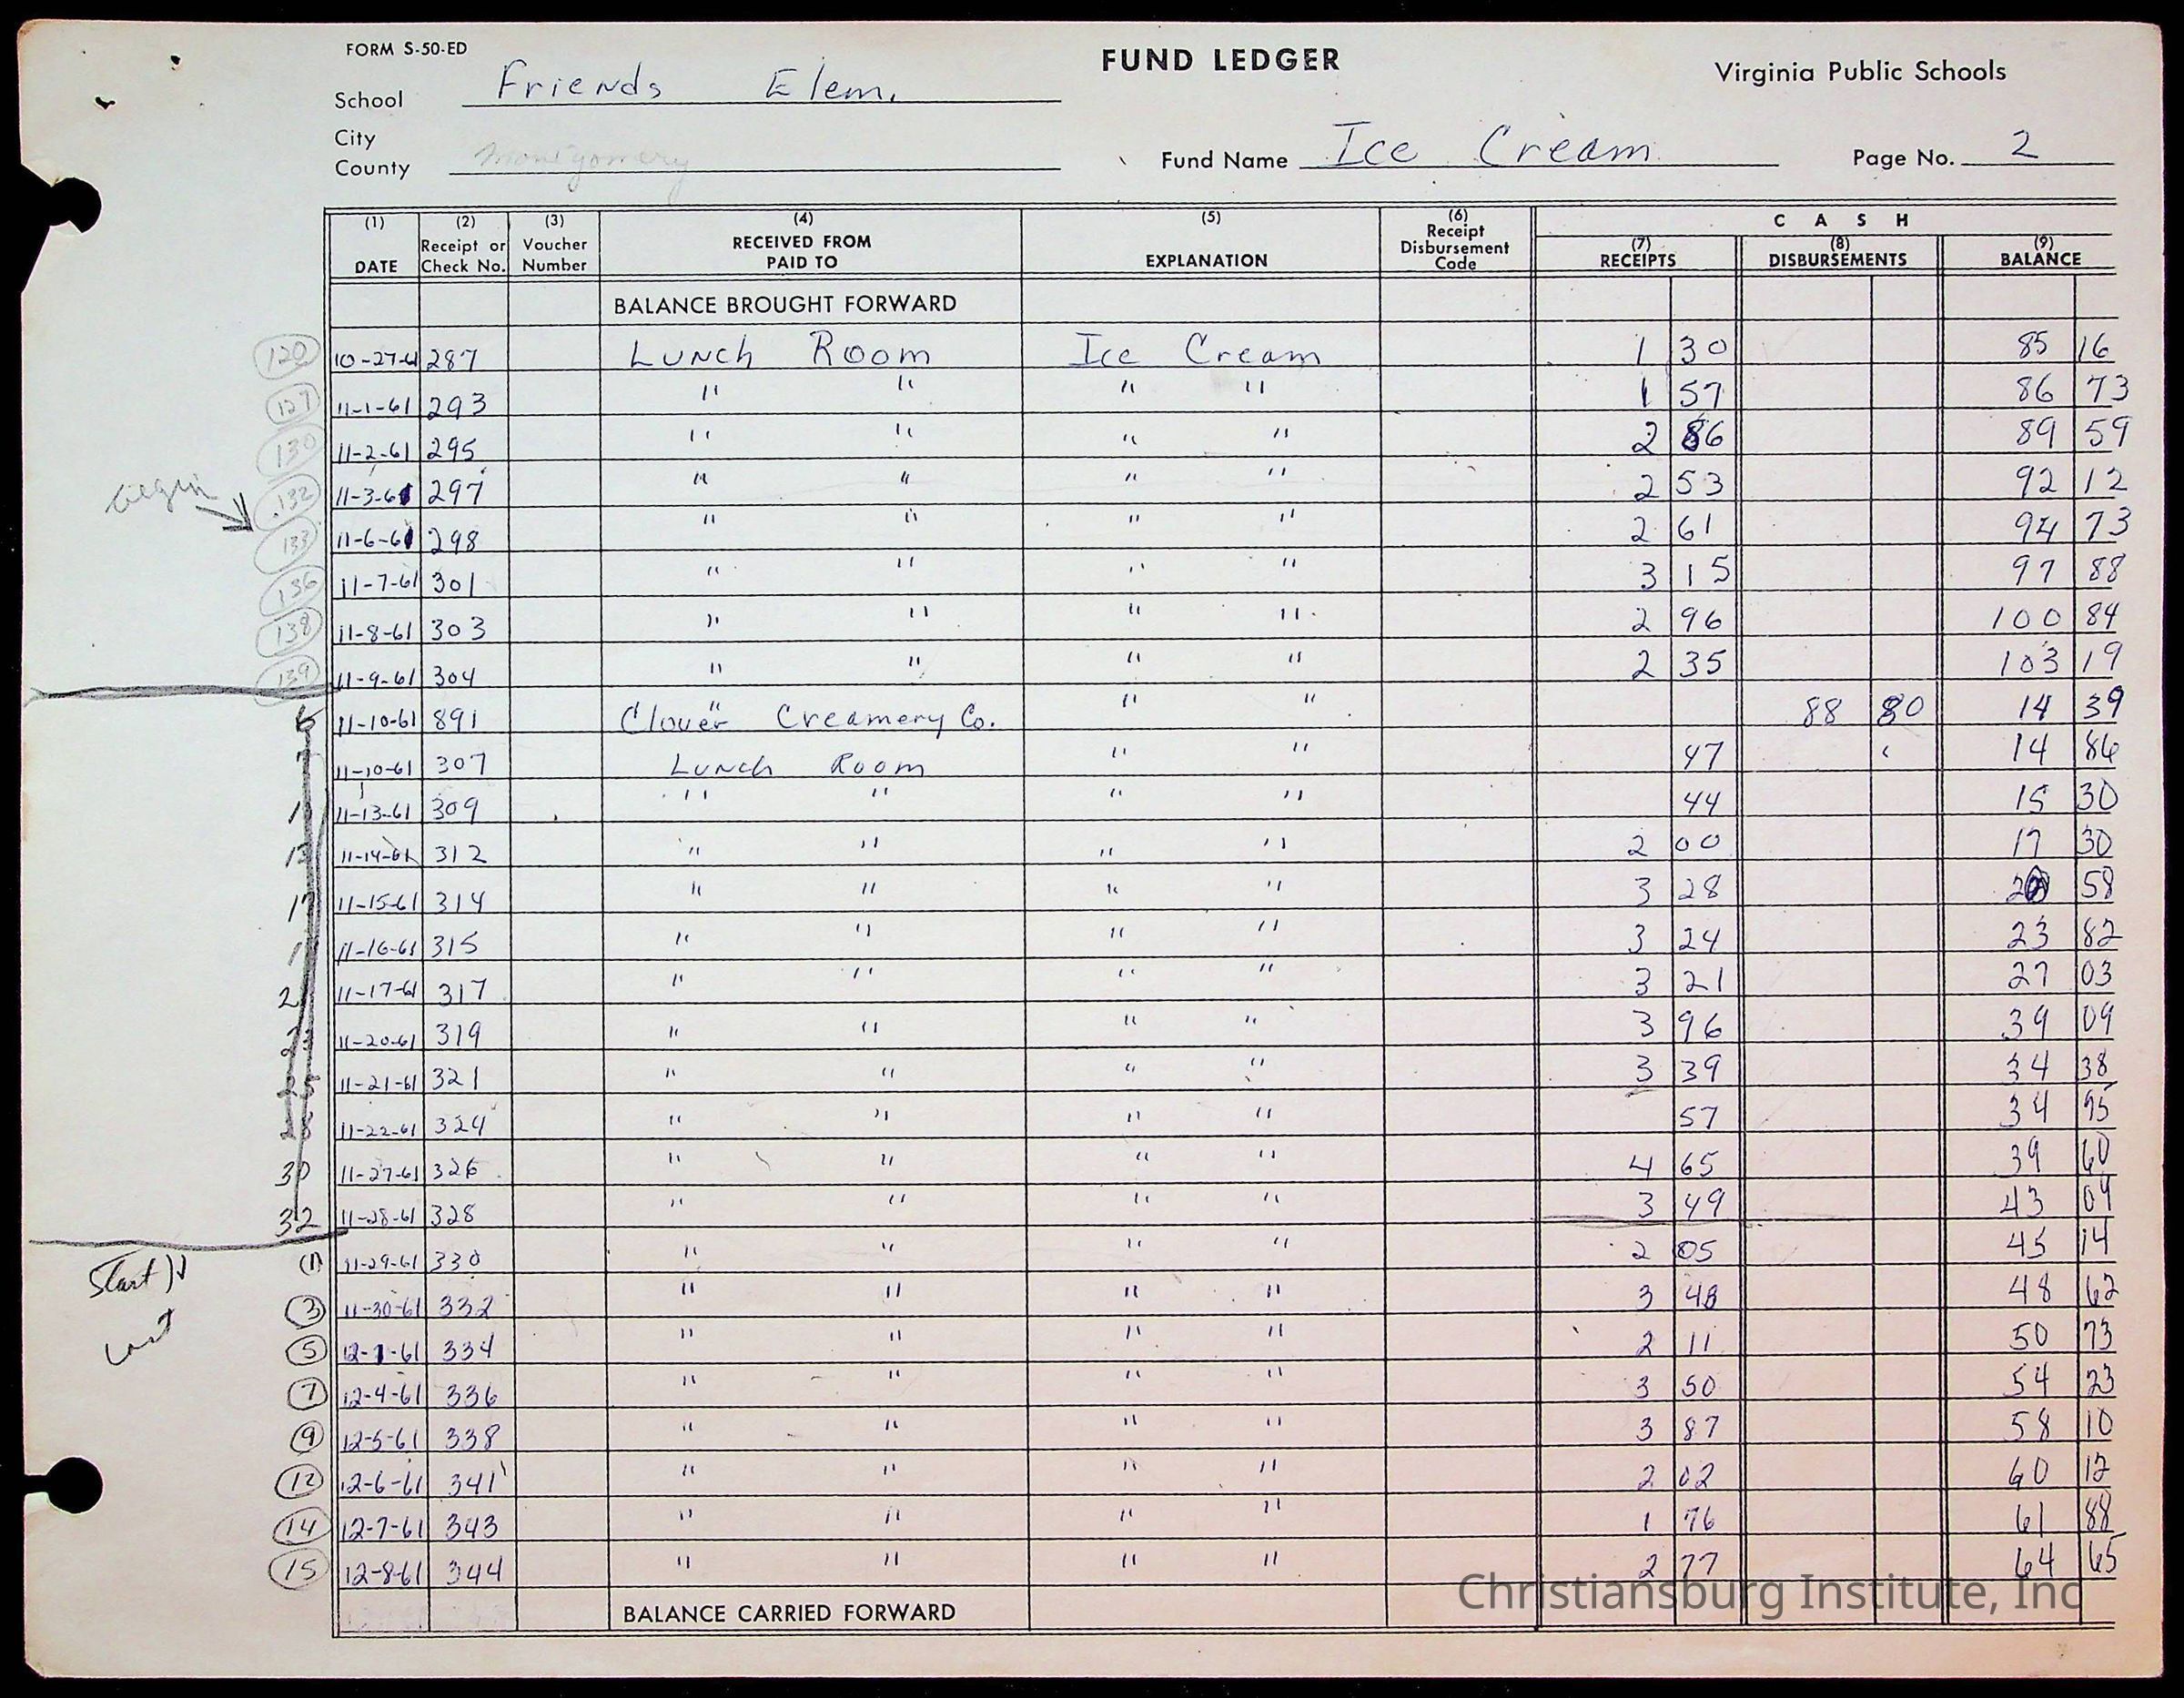 FORM S-50-ED
FUND LEDGER
Virginia Public Schools
School Friends Elem.
City
County Montgomery
Fund Name Ice Cream
Page No. 2
(1) DATE (2) Receipt or Check No. (3) Voucher Number (4) RECEIVED FROM PAID TO (5) EXPLANATION (6) Receipt Disbursement Code CASH (7) RECEIPTS (8) DISBURSEMENTS (9) BALANCE
BALANCE BROUGHT FORWARD
120 10-27-61 287 Lunch Room Ice Cream 1 30 85 16
127 11-1-61 293 " " " " 1 57 86 73
130 11-2-61 295 " " " " 2 86 89 59
begin
132 11-3-61 297 " " " " 2 53 92 12
133 11-6-61 298 " " " " 2 61 94 73
136 11-7-61 301 " " " " 3 15 97 88
138 11-8-61 303 " " " " 2 96 100 84
139 11-9-61 304 " " " " 2 35 103 19
11-10-61 891 Clover Creamery Co. " " 88 80 14 39
11-10-61 307 Lunch Room " " 47 14 86
11-13-61 309 " " " " 44 15 30
11-14-61 312 " " " " 2 00 17 30
11-15-61 314 " " " " 3 28 20 58
11-16-61 315 " " " " 3 24 23 82
11-17-61 317 " " " " 3 21 27 03
11-20-61 319 " " " " 3 96 39 09
11-21-61 321 " " " " 3 39 34 38
11-22-61 324 " " " " 57 34 95
30 11-27-61 326 " " " " 4 65 39 60
32 11-28-61 328 " " " " 3 49 43 09
(1) 11-29-61 330 " " " " 2 05 45 14
Start
3 11-30-61 332 " " " " 3 48 48 62
5 12-1-61 334 " " " " 2 11 50 73
7 12-4-61 336 " " " " 3 50 54 23
9 12-5-61 338 " " " " 3 87 58 10
12 12-6-61 341 " " " " 2 02 60 12
14 12-7-61 343 " " " " 1 76 61 88
15 12-8-61 344 " " " " 2 77 64 65
Christiansburg Institute, Inc
BALANCE CARRIED FORWARD